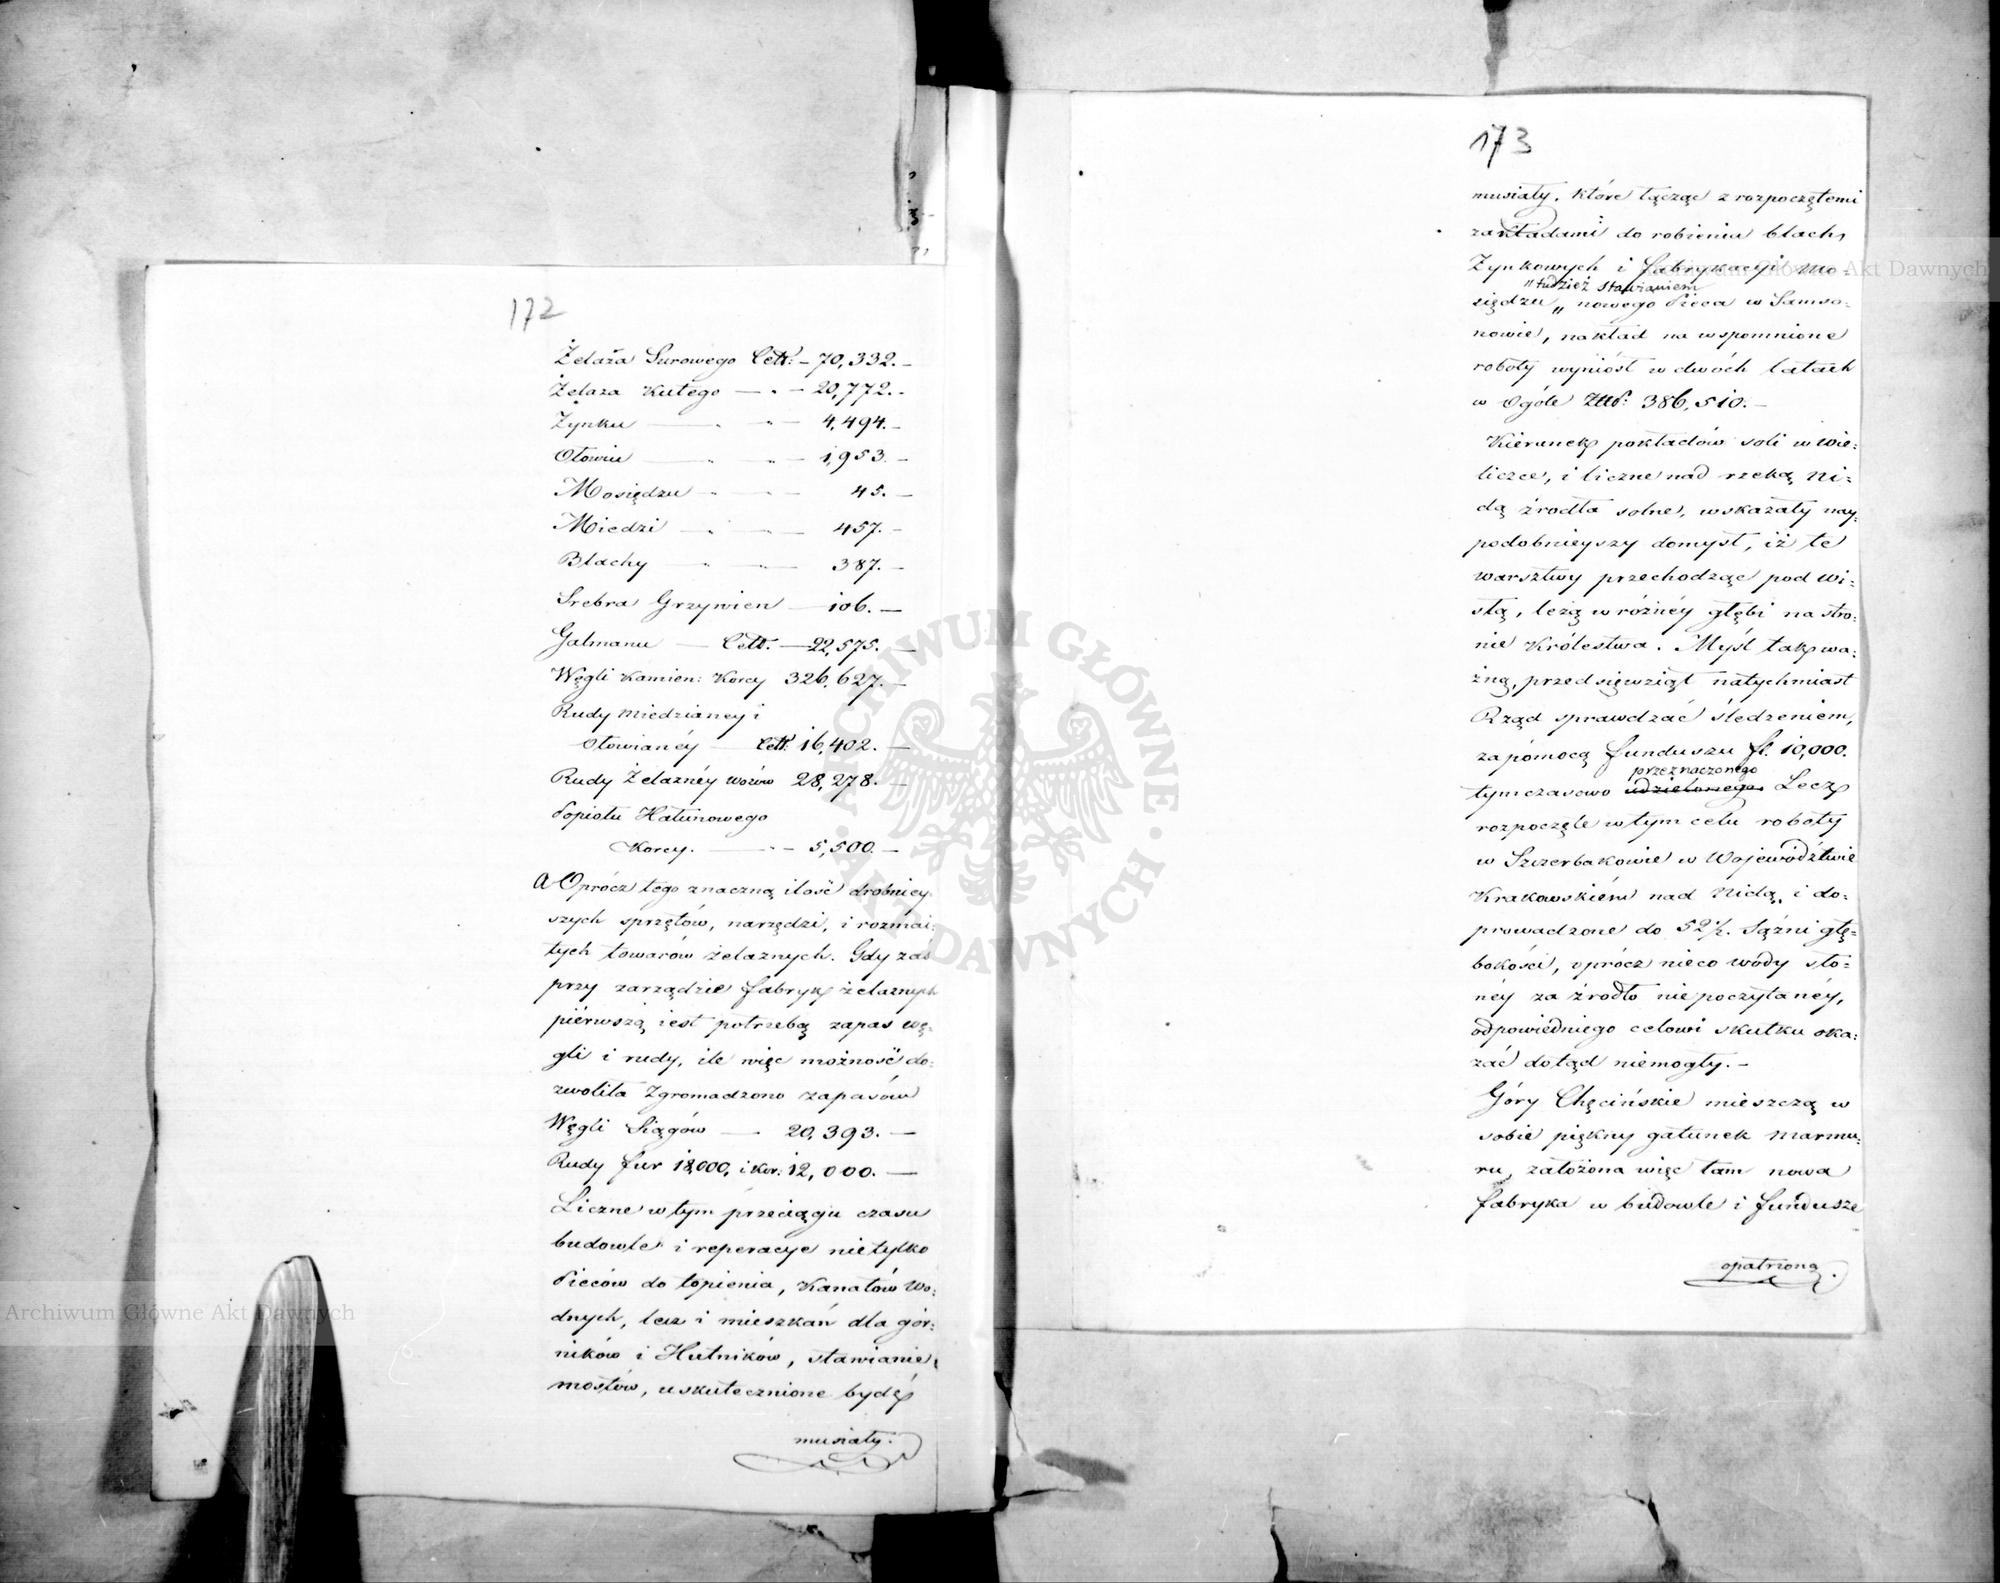 172
Żelaza Surowego Cett: – 70,332. –
Żelaza Kutego — „ — 20,772. –
Zynku — „ „ — 4,494. –
Ołowiu — „ „ — 1,953. –
Mosiędzu — „ — 45. –
Miedzi — „ — 457. –
Blachy — „ — 387. –
Srebra Grzywien — 106. –
Galmanu — Cett. — 22,575. –
Węgli Kamien: Korcy 326,627. –
Rudy Miedzianey i
Ołowianéy — Cett. 16,402. –
Rudy Żelaznéy wozów 28,278. –
Popiołu Hałunowego
Korcy. — „ – 5,500. –
a Oprócz tego znaczną ilość drobniey
szych sprzętów, narzędzi, i rozmai:
tych towarów żelaznych. Gdy zaś
przy zarządzie fabryk żelaznych
piérwszą iest potrzebą zapas wę:
gli i rudy, ile więc możność do:
zwoliła Zgromadzono zapasów
Węgli Siągów — 20,393. —
Rudy fur 18,000, i kor: 12,000. —
Liczne w tym przeciągu czasu
budowle i reperacye nietylko
Pieców do topienia, Kanałów Wo:
dnych, lecz i mieszkań dla gór:
ników i Hutników, stawianie
mostów, uskutecznione bydź
musiały.
173
musiały, które łącząc z rozpoczętemi
zakładami do robienia blach,
Zynkowych i fabrykacyi Mo:
„tudzież stawianiem
siędzu „ nowego Pieca w Samso:
nowie, nakład na wspomnione
roboty wyniósł w dwóch latach
w Ogóle Złł: 386,510. –
Kierunek pokładów soli w Wie:
liczce, i liczne nad rzeką Ni:
dą źrodła solne, wskazały nay
podobnieyszy domysł, iż te
warsztwy przechodząc pod Wi:
słą, leżą w różnéy głębi na stro:
nie Królestwa. Myśl tak wa:
żną, przedsięwziął natychmiast
Rząd sprawdzać śledzeniem,
za pomocą funduszu fl. 10,000.
przeznaczonego
tymczasowo udzielonego Lecz
rozpoczęte w tym celu roboty
w Szczerbakowie w Wojewódźtwie
Krakowskiém nad Nidą, i do:
prowadzone do 52½. Sążni głę:
bokości, oprócz nieco wody sło:
néy za źrodło niepoczytanéy,
odpowiedniego celowi skutku oka:
zać dotąd niemogły. –
Góry Chęcińskie mieszczą w
sobie piękny gatunek Marmu:
ru, założona więc tam nowa
fabryka w budowle i fundusze
opatrzona.
ARCHIWUM GŁÓWNE AKT DAWNYCH
Archiwum Główne Akt Dawnych
Archiwum Główne Akt Dawnych